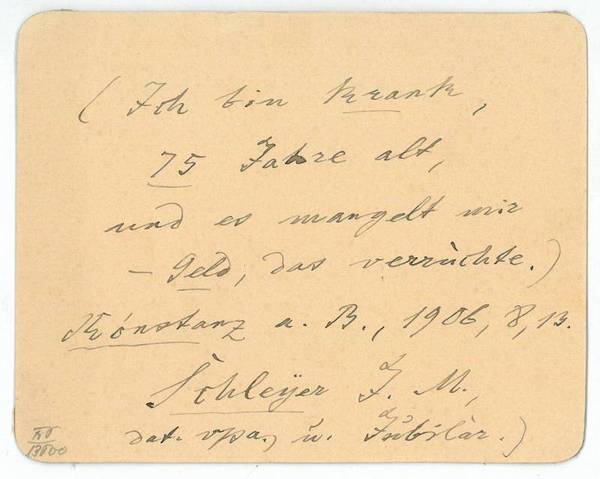 ( Ich bin krank,
75 Jahre alt,
und es mangelt mir
– Geld, das verrùchte.)
Kónstanz a. B., 1906, 8, 13.
Schleÿer J. M.,
dat. vpa., u. Jubilar.)